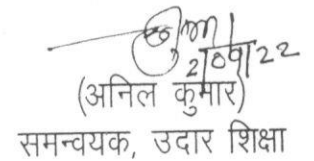 2/09/22
(अनिल कुमार)
समन्वयक, उदार शिक्षा